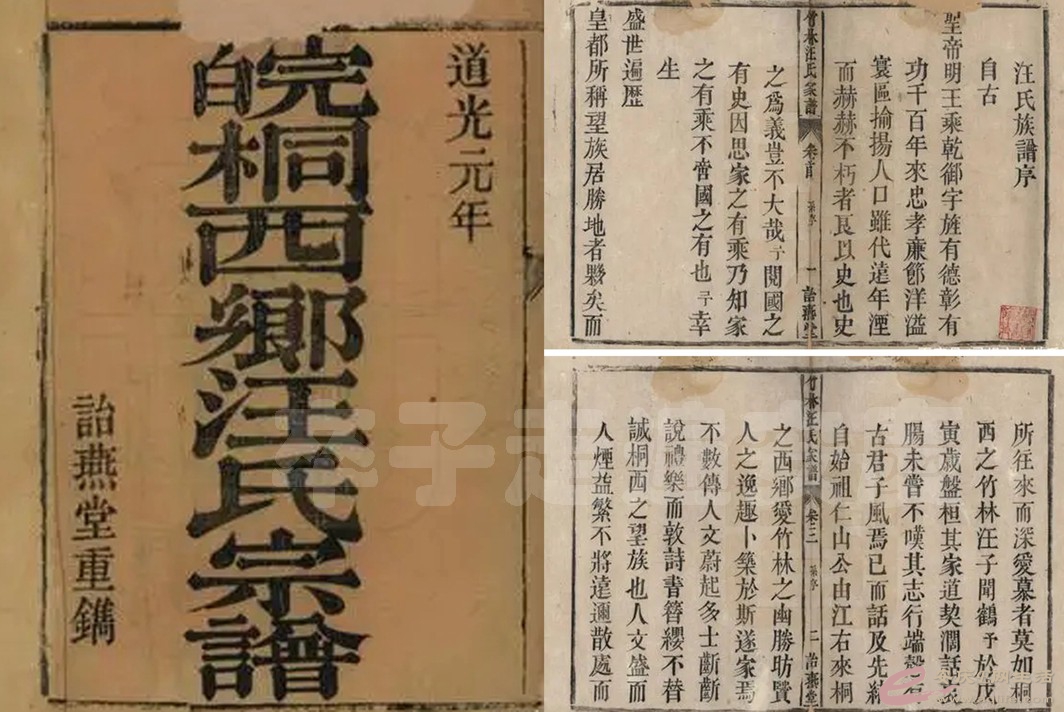 道光元年
皖桐西鄉汪氏宗譜
詒燕堂重鐫
汪氏族譜序
自古
聖帝明王乘乾御宇旌有德彰有
功千百年來忠孝廉節洋溢
寰區揄揚人口雖代遠年湮
而赫赫不朽者良以史也史
竹林汪氏家譜
卷首
一
詒燕堂
之為義豈不大哉予閱國之
有史因思家之有乘乃知家
之有乘不啻國之有也予幸
生
盛世遍歷
皇都所稱望族居勝地者夥矣而
所往來而深愛慕者莫如桐
西之竹林汪子聞鶴予於戊
寅歲盤桓其家道契濶話衷
腸未嘗不嘆其志行端
古君子風焉已而話及先
自始祖仁山公由江右來桐
竹林汪氏家譜
卷三
二
詒燕堂
之西鄉愛竹林之幽勝昉賢
人之逸趣卜築於斯遂家焉
不數傳人文蔚起多士斷斷
說禮樂而敦詩書簪纓不替
誠桐西之望族也人文盛而
人煙益繁不將遠邇散處而